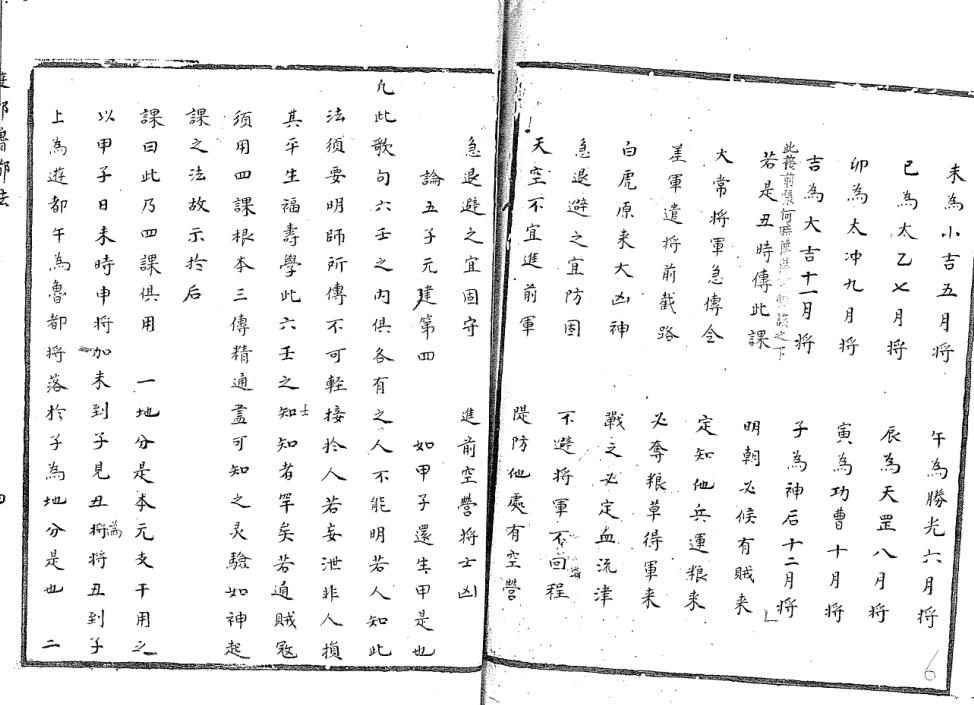 未為小吉五月將 午為勝光六月將
巳為太乙七月將 辰為天罡八月將
卯為太冲九月將 寅為功曹十月將
吉為大吉十一月將 子為神后十二月將
此 前 何 之下
若是丑時傳此課 明朝必候有賊來
大常將軍急傳令 定知他兵運粮來
差軍遣將前截路 必奪粮草得軍來
白虎原来大凶神 戰之必定血流津
急退避之宜防固 不避將軍不回程
天空不宜進前軍 隄防他處有空營
急退避之宜固守 進前空營將士凶
論五子元建第四 如甲子還生甲是也
凡此歌句六壬之內俱各有之人不能明若人知此
法須要明師所傳不可軽接於人若妄泄非人損
其平生福壽學此六壬之知士知者罕矣若遇賊冦
須用四課根本三傳精通盡可知之灵驗如神起
課之法故示於后
課曰此乃四課俱用 一地分是本元支干用之
以甲子日未時申將加未到子見丑將為將丑到子
上為遊都午為魯都將落於子為地分是也 二
遊都魯都法
6